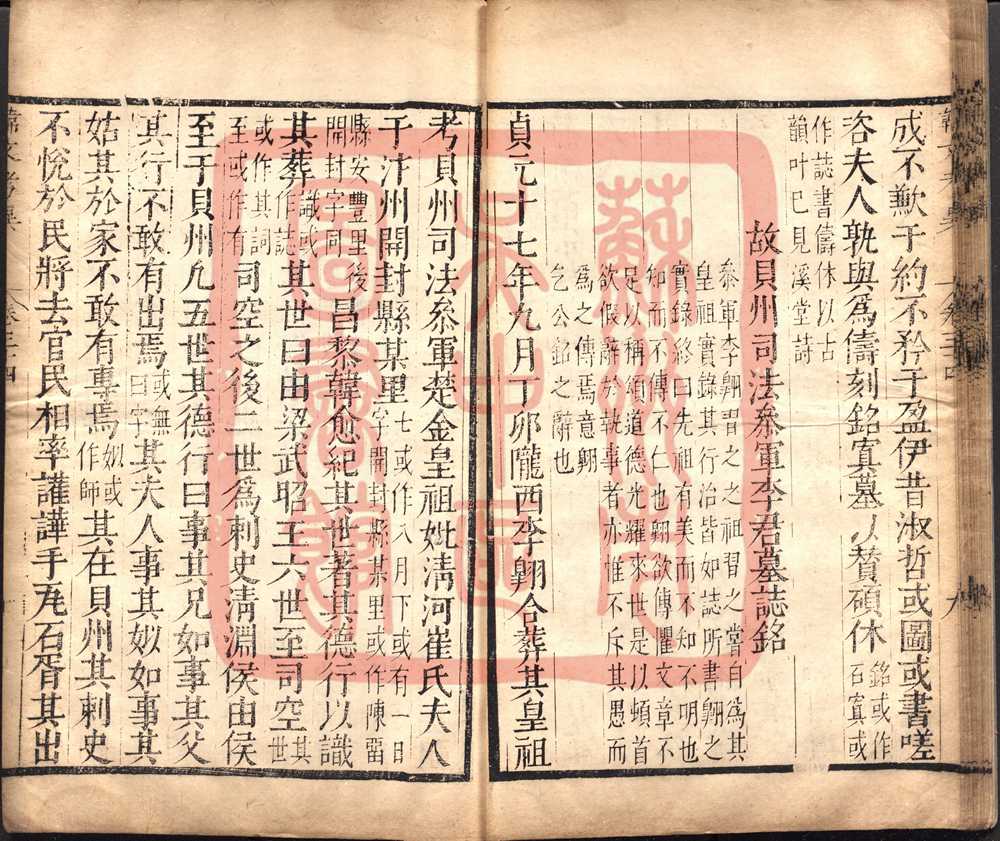 成不歉于約不矜于盈伊昔淑哲或圖或書嗟
咨夫人孰與爲儔刻銘寘墓以贊碩休
銘或作
石寘或
作誌書儔休以古
韻叶巴見溪堂詩
故貝州司法參軍李君墓誌銘
參軍李翺習之之祖習之嘗自爲其
皇祖實錄其行治皆如誌所書翺之
實錄終曰先祖有美而不知不明也
知而不傳不仁也翺欲傳懼文章不
足以稱頌道德光耀來世是以頓首
欲假辭於執事者亦惟不斥其愚而
爲之傳焉意翺
乞公銘之辭也
貞元十七年九月丁卯隴西李翺合葬其皇祖
考貝州司法參軍楚金皇祖妣淸河崔氏夫人
于汴州開封縣某里
七或作八月下或有一日
字開封縣某里或作陳留
縣安豐里後
開封字同
昌黎韓愈紀其世著其德行以識
其葬
識或
作誌
其世曰由梁武昭王六世至司空
其
世
或作其詞
至或作有
司空之後二世爲刺史淸淵侯由侯
至于貝州凡五世其德行曰事其兄如事其父
其行不敢有出焉
或無
曰字
其夫人事其姒如事其
姑其於家不敢有專焉
姒或
作師
其在貝州其刺史
不悅於民將去官民相率讙譁手瓦石胥其出